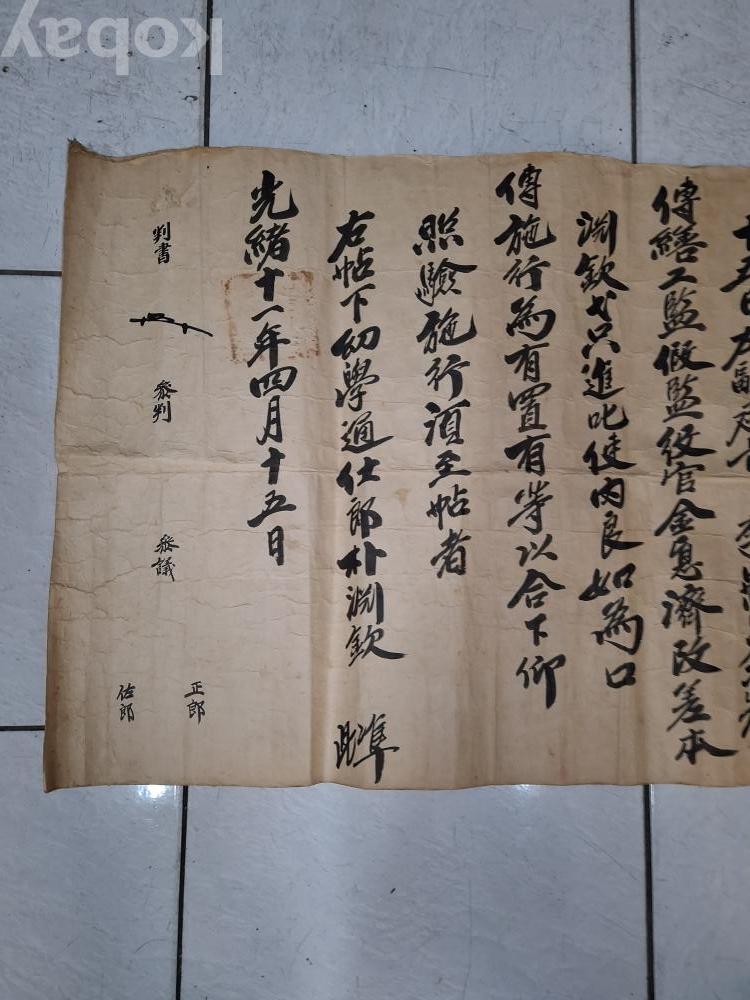 傳繕工監假監役官金惠濟改差本
淵欽戈只進叱使內良如爲口
傳施行爲有置有等以合下仰
照驗施行須至帖者
右帖下幼學通仕郎朴淵欽 此準
光緖十一年四月十五日
判書
參判
參議
正郎
佐郎
kobay